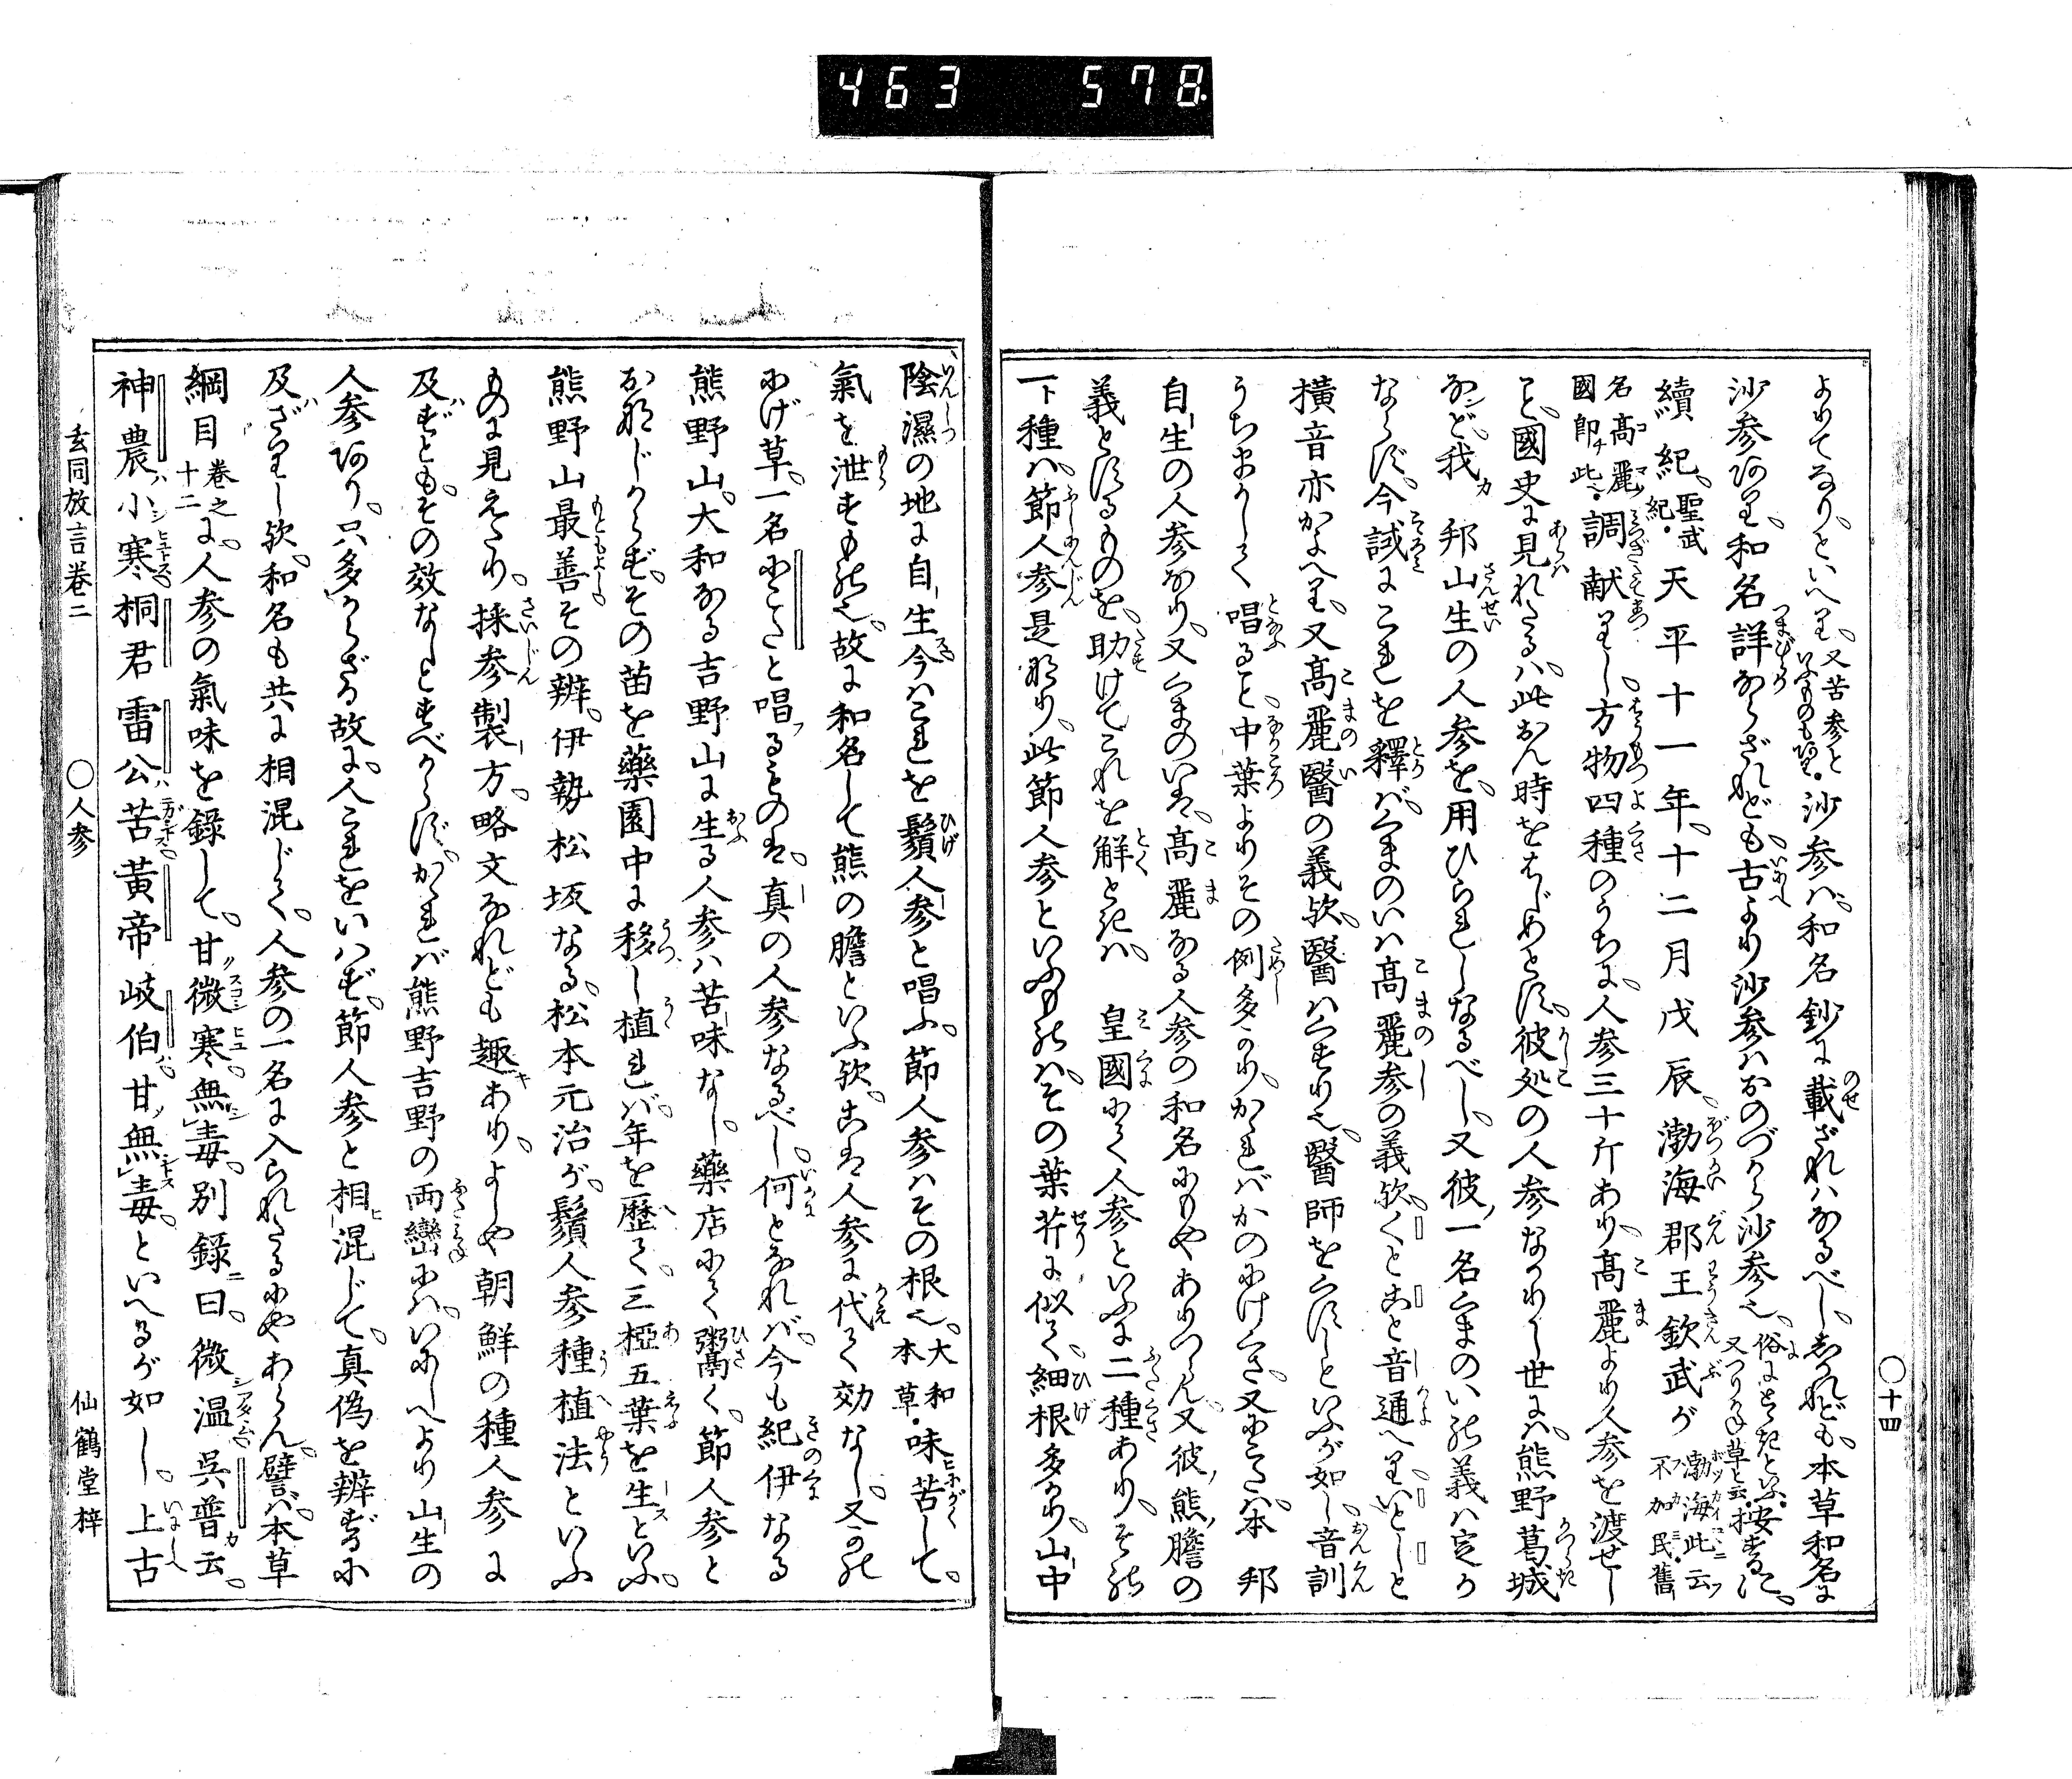 463 578
よりてなり、といへり、又苦参といふものも阿り沙参ハ、和名鈔に載ざれハなるべし、しかれども、本草和名に
沙参阿り、和名詳ならざれども、古より沙参ハおのづから沙参也、
續紀、聖武紀天平十一年、十二月戊辰、渤海郡王欽武が渤海此云不加民舊
名高麗國即此調献りし、方物四種のうちに、人参三十斤あり、高麗より人参を渡せし
こと、國史に見れたるハ、此おん時をはじめとす、彼処の人参なかりし世にハ、熊野葛城
など、我邦山生の人参を、用ひられしなるべし、又彼一名くまのいの義ハ定か
ならず、今試にこれを釋バ、くまのいハ高麗参の義欤、くとこと音通へり、いとしと
横音亦かよへり、又高麗醫の義欤、醫ハくすり也、醫師をくすしといふが如し、音訓
うちまかして唱ること、中葉よりその例多かり、かゝれバかのにけくさ、又にこたハ、本邦
自生の人参なり、又くまのいハ、高麗なる人参の和名にもやありつらん、又彼熊膽の
義とするものを、助けてこれを解ときハ、皇國にて人参といふに二種あり、その
一ト種ハ、節人参是なり、此節人参といふものハ、その葉芹に似て、細根多かり、山中
陰濕の地に自生今ハこれを鬚人参と唱ふ、節人参ハその根也、大和本草味苦して、
氣を泄すもの也、故に和名して熊の膽といふ欤、こは人参に代て効なし、又かの
にげ草、一名にこたと唱るものは、真の人参なるべし、何となれバ、今も紀伊なる
熊野山、大和なる吉野山に生る人参ハ苦味なし、藥店にて粥く、節人参と
おなじからず、その苗を藥園中に移し植れバ、年を歴て、三椏五葉を生といふ、
熊野山最善その辨、伊勢松坂なる、松本元治が、鬚人参種植法といふ
ものに見えたり、採参製方、略文なれども趣あり、よしや朝鮮の種人参に
及ずとも、その效なしとすべからず、かゝれバ熊野吉野の両巒にハ、いにしへより山生の
人参阿り、只多からざる故に、人これをいハず、節人参と相混じて、真偽を辨ずるに
及ざりし欤、和名も共に相混じて、人参の一名に入られたるにやあらん、譬バ、本草
綱目巻之十二に、人参の氣味を錄して、甘微寒、無毒、別録曰、微温、呉普云、
神農小寒、桐君雷公苦、黃帝岐伯甘、無毒、といへるが如し、上古
玄同放言巻二 ○人参 仙鶴堂梓
○十四